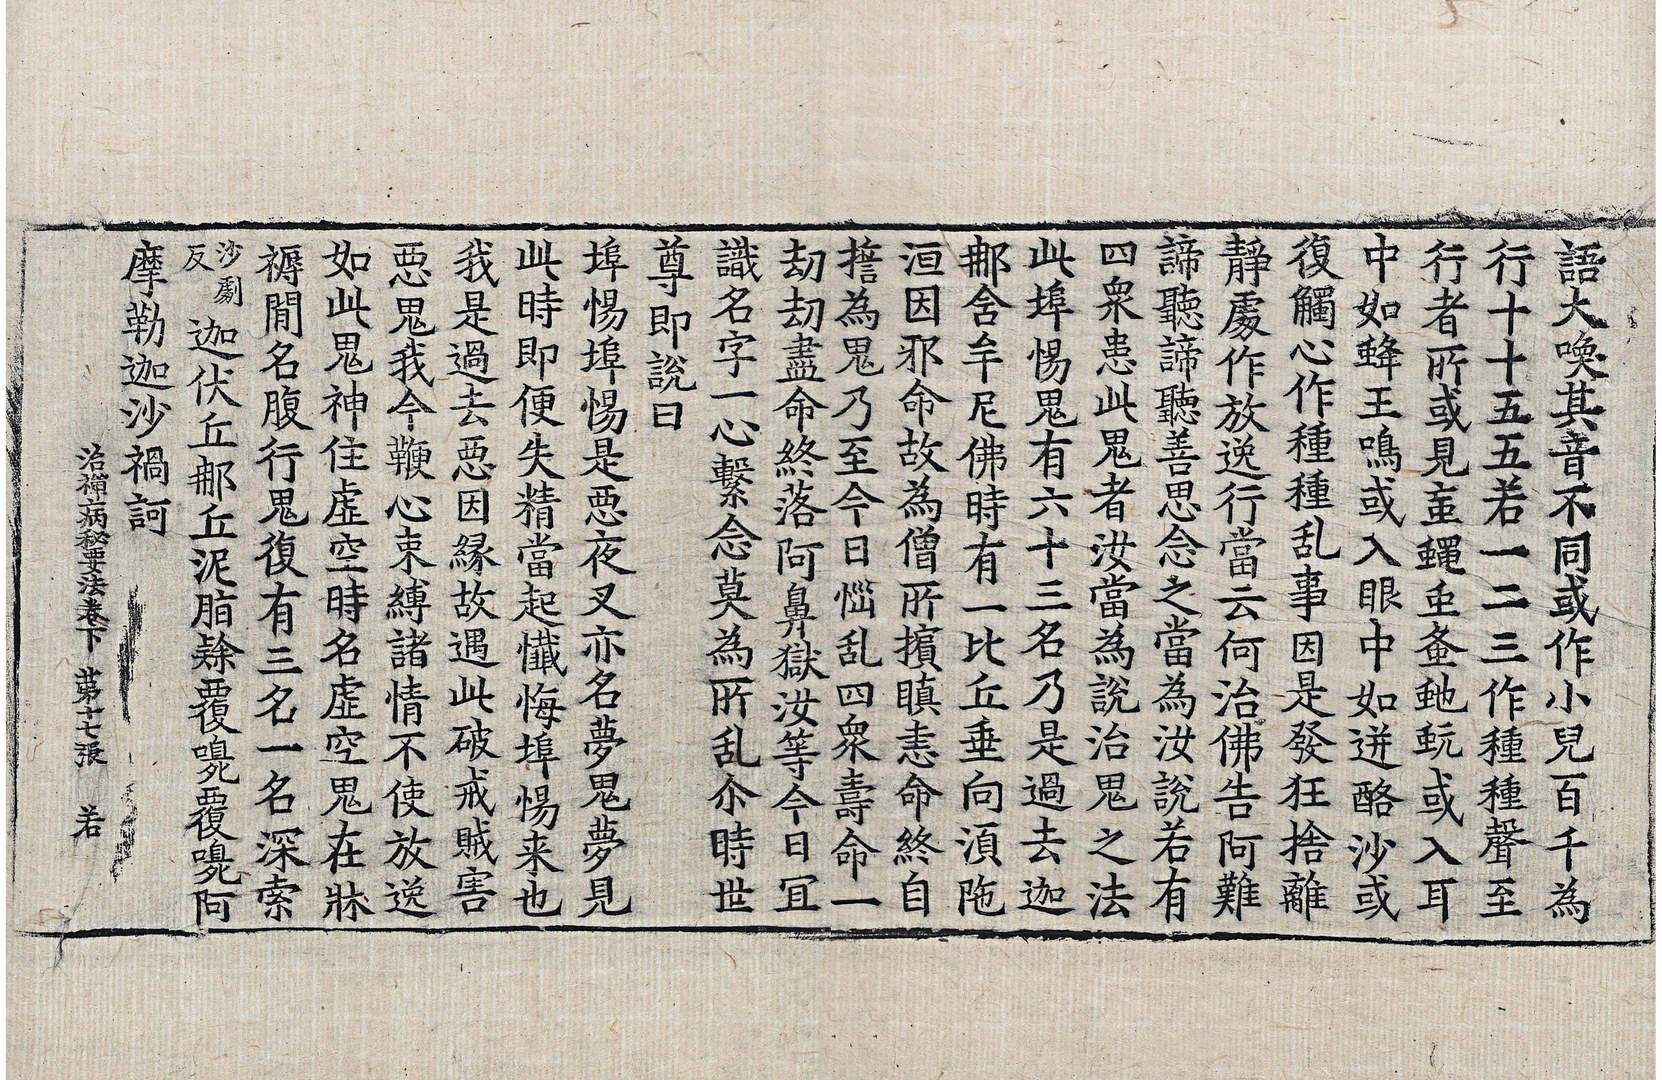 語大喚其音不同或作小兒百千為
行十十五五若一二三作種種聲至
行者所或見䖝蠅䖝蚤虵蚖或入耳
中如蜂王鳴或入眼中如迸酪沙或
復觸心作種種乱事因是發狂捨離
靜處作放逸行當云何治佛告阿難
諦聽諦聽善思念之當為汝說若有
四衆患此鬼者汝當為說治鬼之法
此埠惕鬼有六十三名乃是過去迦
那舍牟尼佛時有一比丘垂向湏陁
洹因邪命故為僧所擯瞋恚命終自
擔為鬼乃至今日惱乱四衆壽命一
劫劫盡命終落阿鼻獄汝等今日冝
識名字一心繫念莫為所乱尒時世
尊即說曰
埠惕埠惕是惡夜叉亦名夢鬼夢見
此時即便失精當起懺悔埠惕来也
我是過去惡因縁故遇此破戒賊害
惡鬼我今鞭心束縛諸情不使放逸
如此鬼神住虛空時名虛空鬼在牀
褥閒名腹行鬼復有三名一名深索
沙劇反迦伏丘那丘泥脂覆覆阿
摩勒迦沙禍訶
治禪病秘要法卷下 第十七張 若